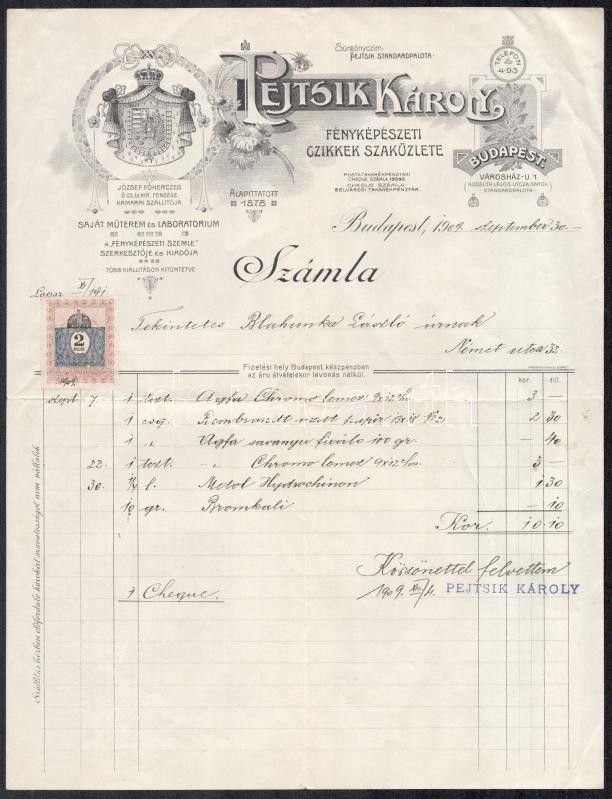 Sürgönyczim:
PEJTSIK STANDARDPALOTA
PEJTSIK KÁROLY,
FÉNYKÉPÉSZETI
CZIKKEK SZAKÜZLETE
POSTATAKARÉKPÉNZTÁRI
CHEQUE SZÁMLA
CHEQUE SZÁMLA:
BELVÁROSI TAKARÉKPÉNZTÁR.
ALAPITTATOTT
1878
TELEFON
4-93
BUDAPEST.
VÁROSHÁZ-U. 1
KOSSUTH LAJOS UTCZA SAROK
STANDARDPALOTA
JÓZSEF FŐHERCZEG
Ő CS. ÉS KIR. FENSÉGE
KAMARAI SZÁLLITÓJA.
SAJÁT MŰTEREM ÉS LABORATORIUM
A „FÉNYKÉPÉSZETI SZEMLE"
SZERKESZTŐJE ÉS KIADÓJA
TÖBB KIÁLLITÁSON KITÜNTETVE
Budapest, 1909. szeptember 30.–
Számla
Lapaz. XI/191.
Tekintetes Blahunka László úrnak
Német utca 32.
2
1909.
Fizetési hely Budapest készpénzben
az áru átvételekor levonás nélkül.
kor. fill.
szept. 7. 1 tozt. Agfa Chromo lemez 9x12 c/m 3 –
1 csg. Rembrandt matt papir 13x18 No 2 2 30
1 „ Agfa savanyu fixáló 100 gr. – 40
22. 1 tozt. „ Chromo lemez 9x12 c/m. 3 –
30. 1/4 l. Metol Hydrochinon 1 30
10 gr. Bromkali – 10
Kor. 10.10
Köszönettel felvettem
1909. XII/4. PEJTSIK KÁROLY
Cheque.
Szállitás közben előforduló károkért szavatosságot nem vállalok